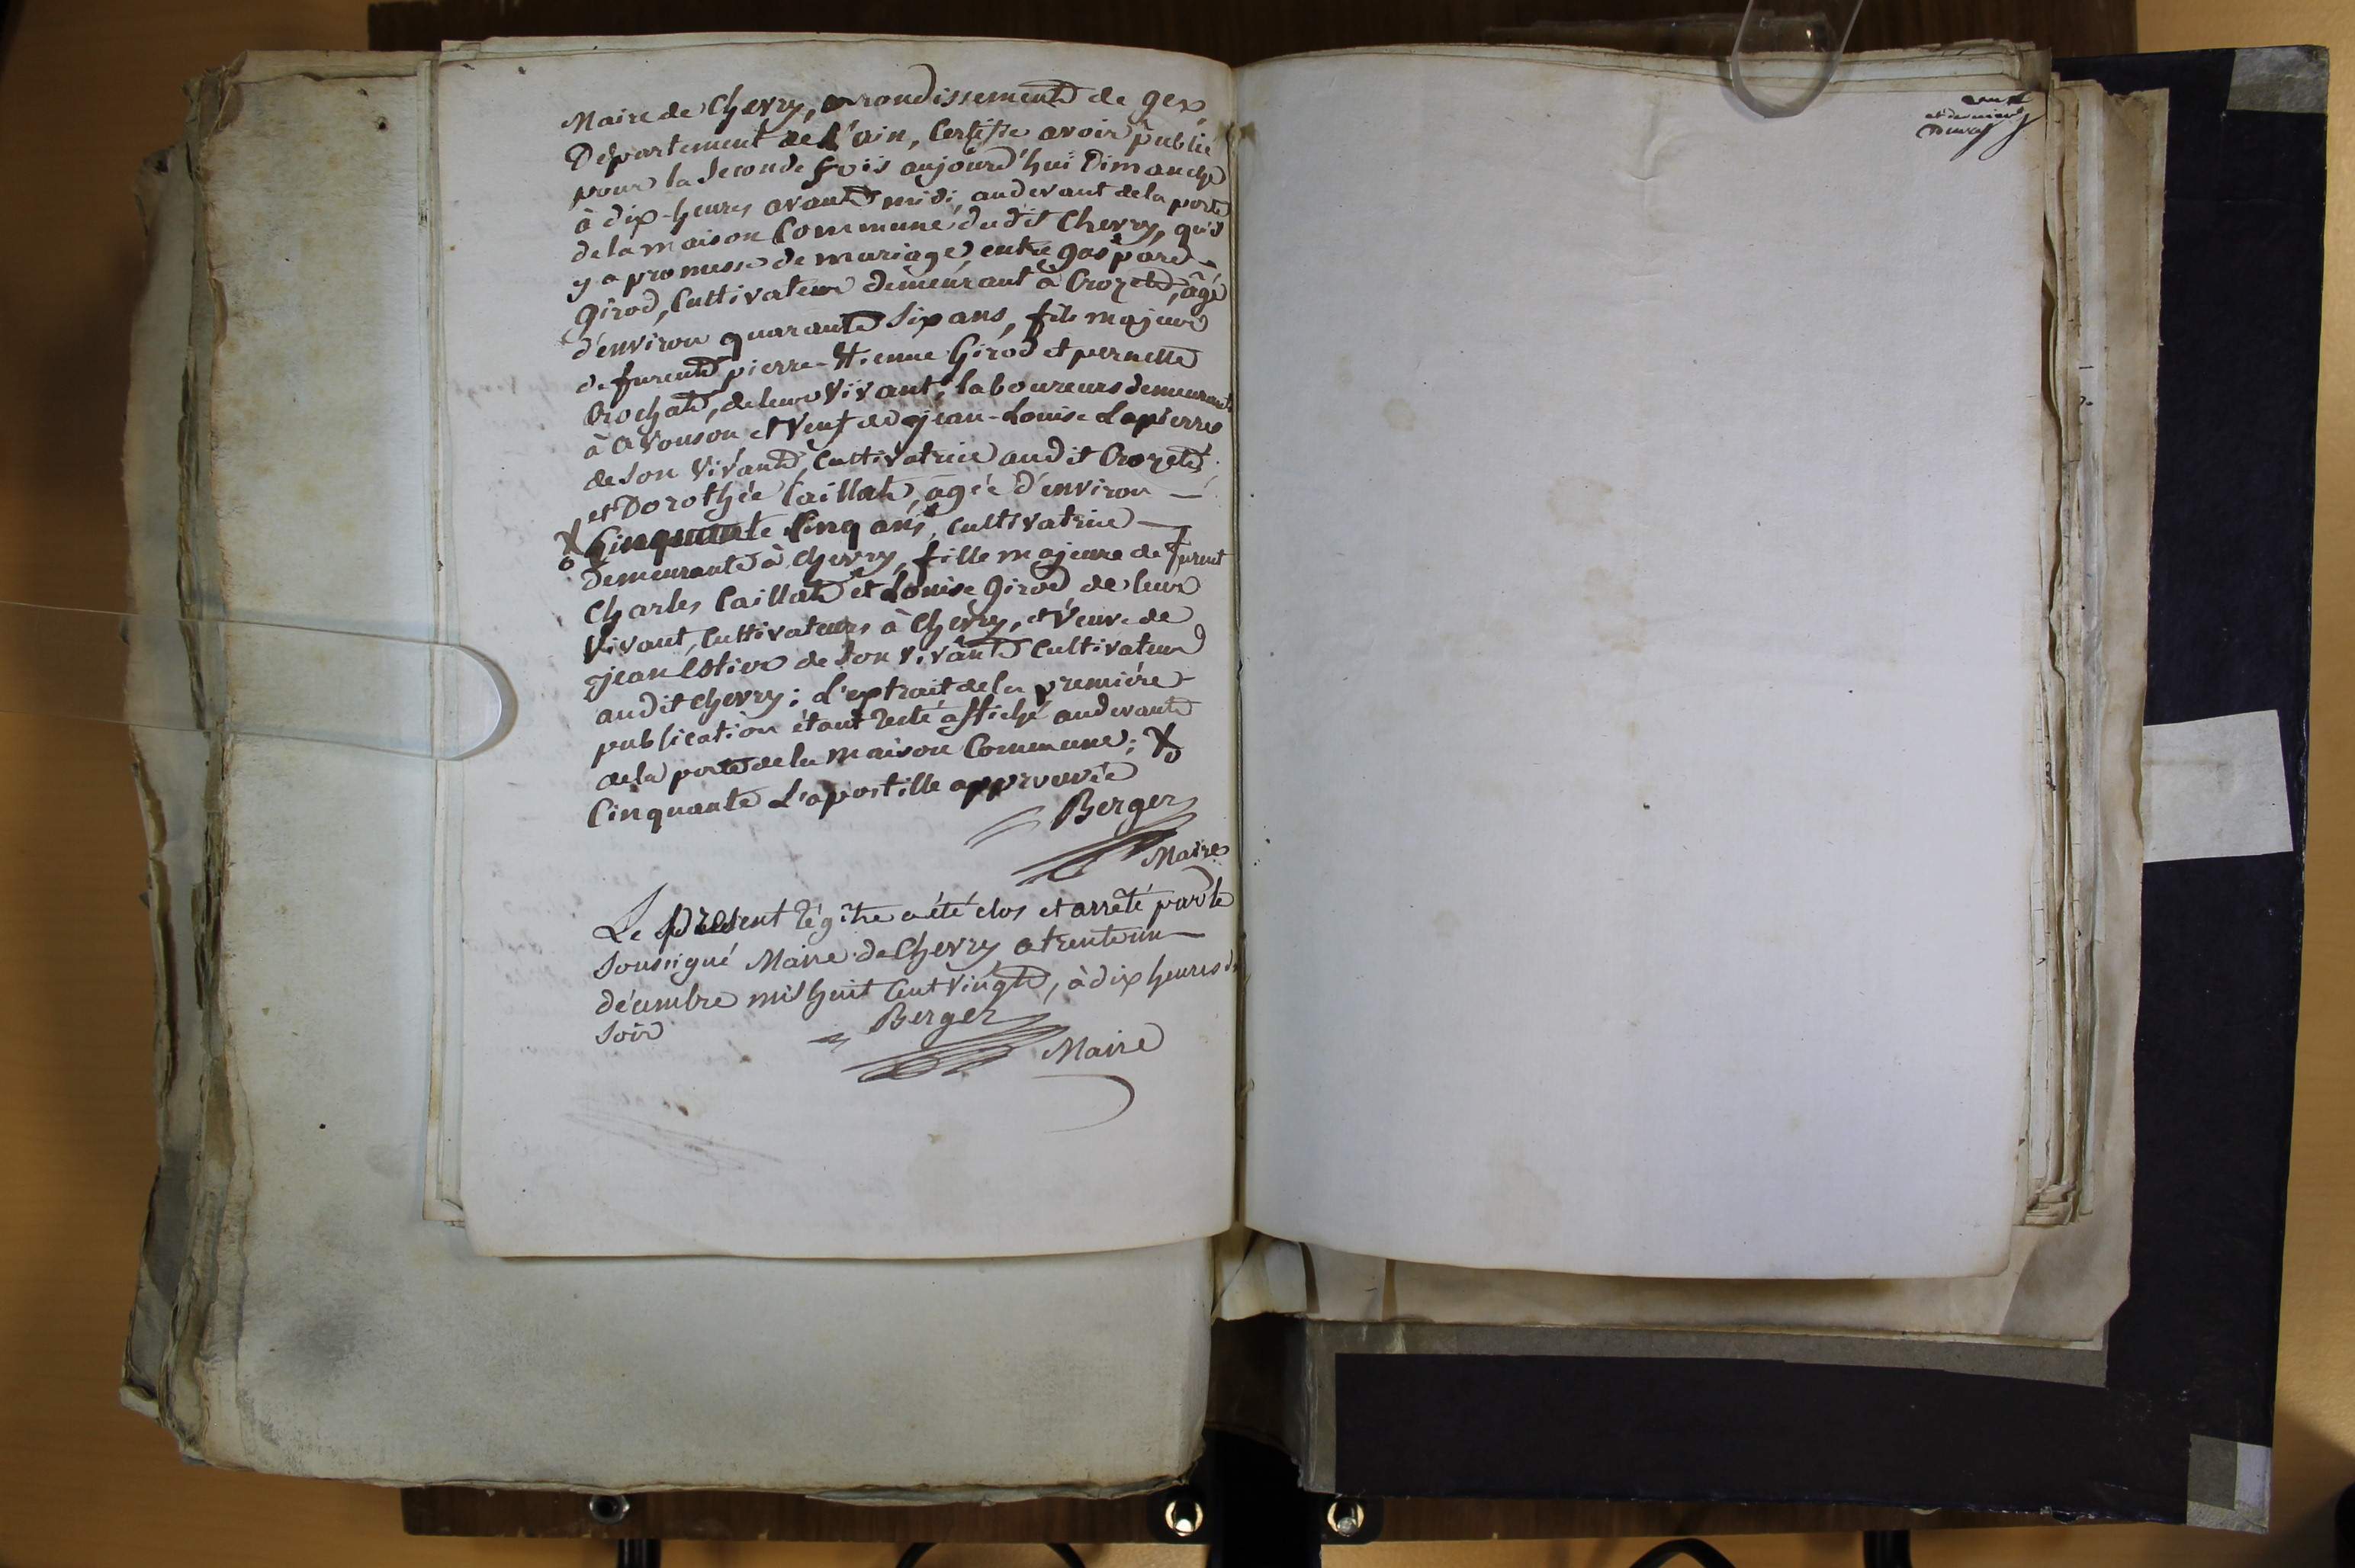 Maire de Chevry, arrondissement de gex,
Département de l'ain, Certifie avoir publié
pour la Seconde fois aujourd'hui Dimanche
à dix-heures avant midi, audevant de la porte
de la maison Commune dudit Chevry, qu'il
y a promesse de mariage, entre gaspard -
girod, Cultivateur demeurant à Crozet, âgé
d'environ quarante Six ans, fils majeur
de furent pierre-Etienne Girod et pernette
Crochat, de leur Vivant, laboureurs demeurant
à Avouson et Veuf de jean-Louise Lapierre
de Son Vivant, Cultivatrice audit Crozet;
et Dorothée Caillat, agée d'environ —
X Cinquante Cinq ans, cultivatrice —
demeurante à Chevry, fille majeure de furent
Charles Caillat et Louise Girod de leur
Vivant, Cultivateurs à Chevry, et Veuve de
jean Estier de Son vivant Cultivateur
audit chevry; L'extrait de la première -
publication étant resté affiché audevant
de la porte de la maison Commune; X
Cinquante L'apostille approuvée
Berger
Maire
Le présent régître a été clos et arrêté par le
Soussigné Maire de Chevry a trente un —
décembre mil huit Cent Vingt, à dix heures du
Soir
Berger
Maire
et dernier